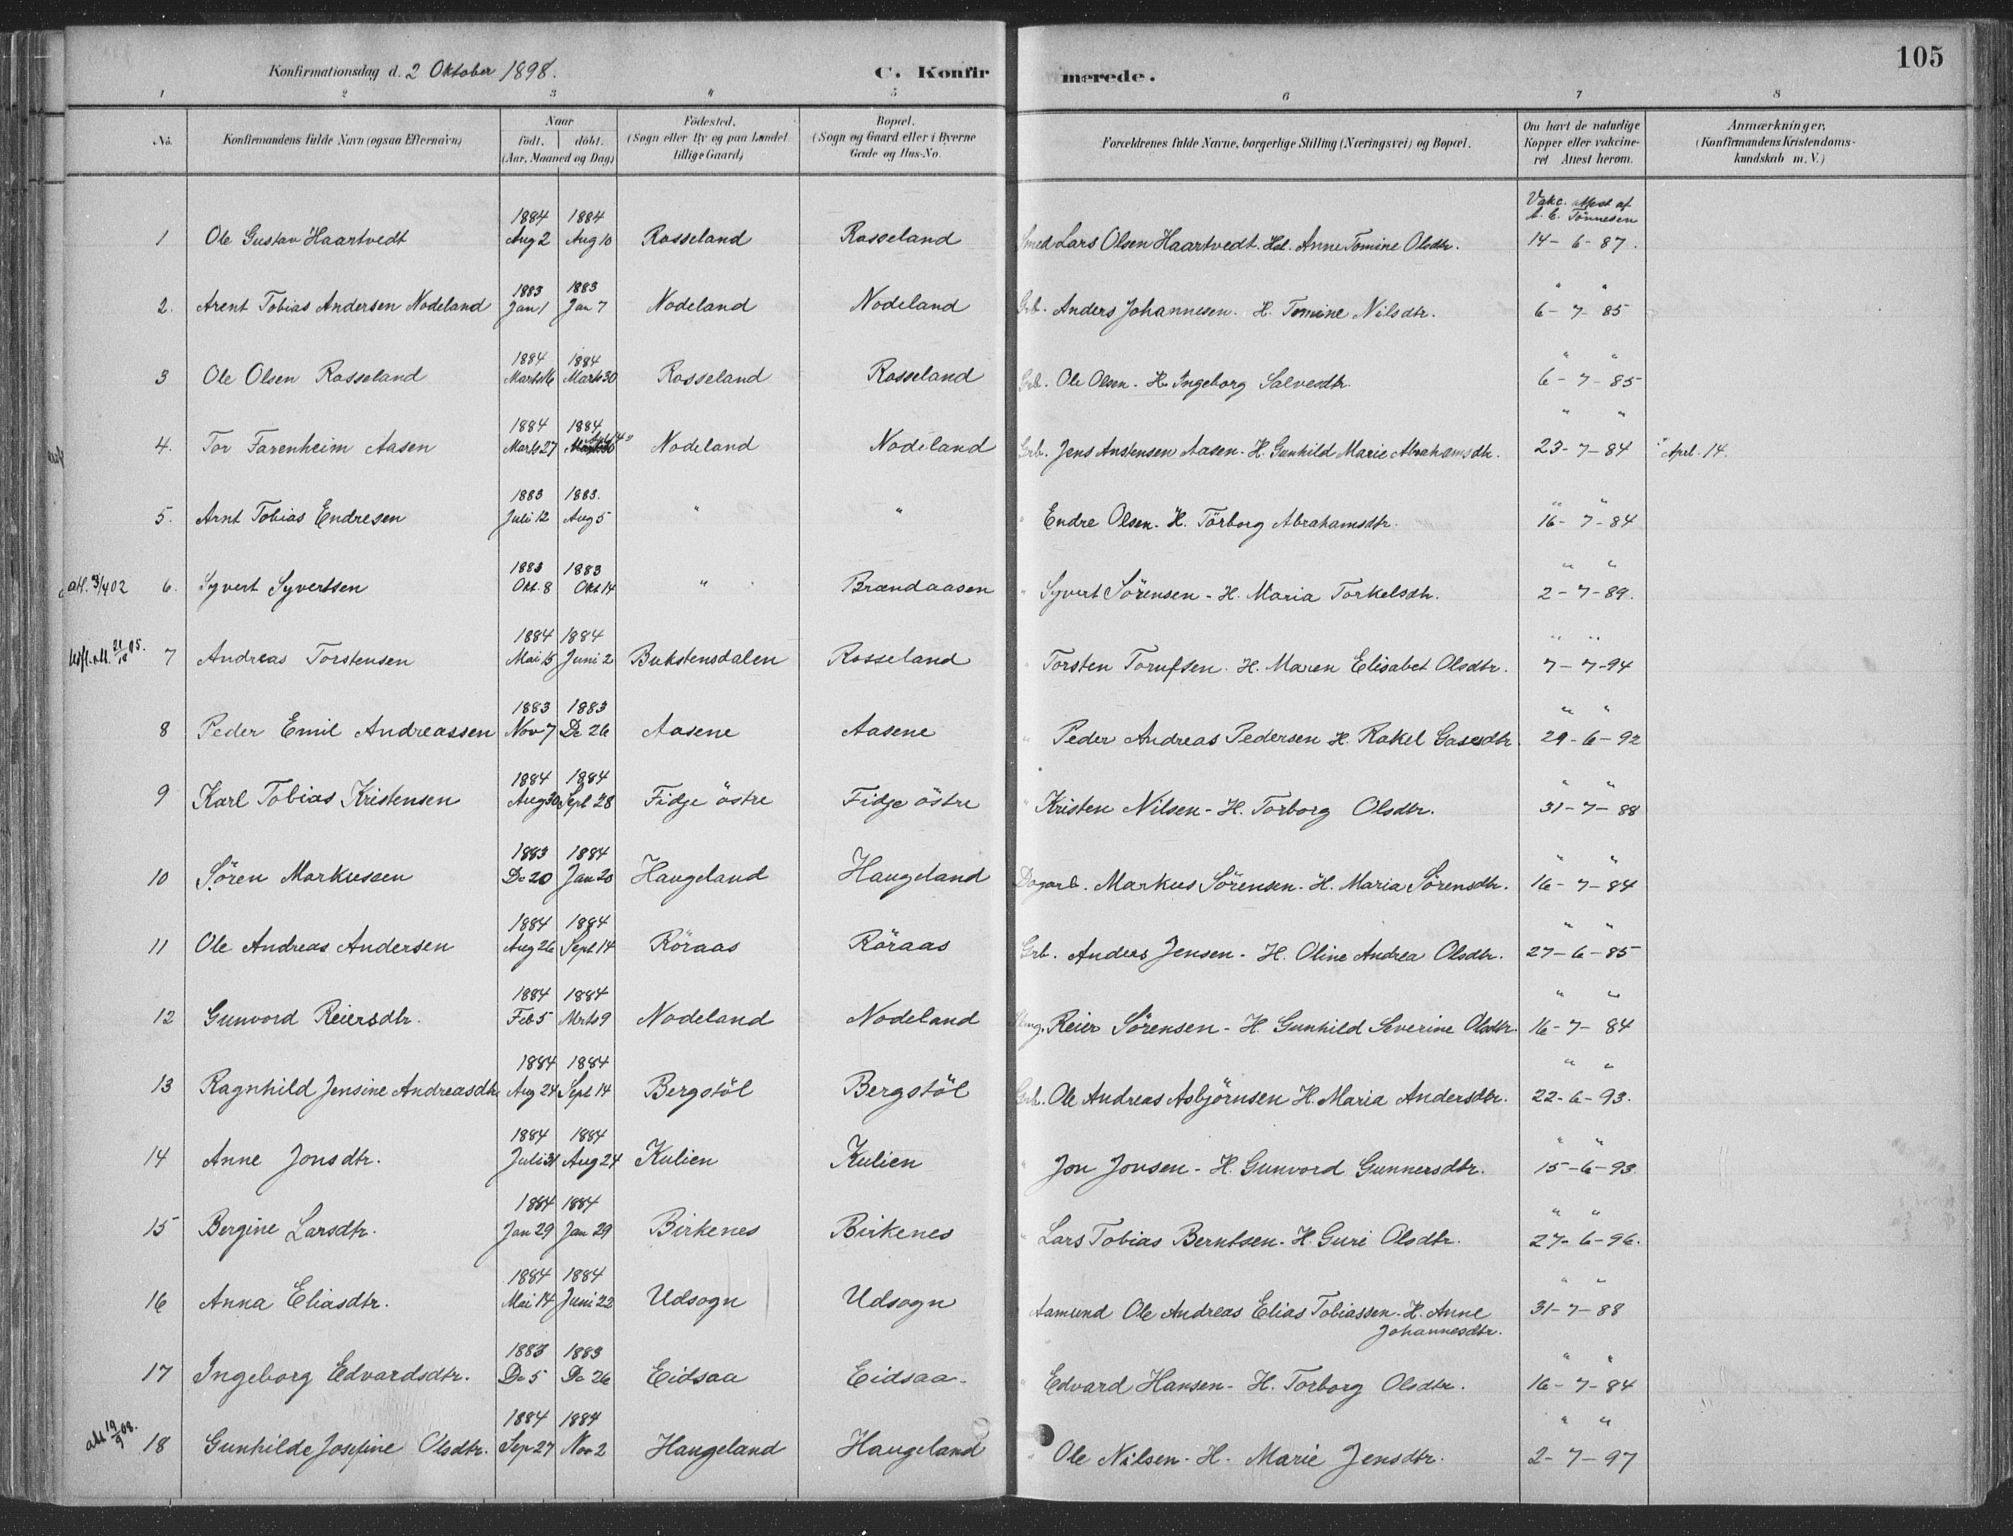 105
Konfirmationsdag d. 2 Oktober 1898. C. Konfirmerede.
1 2 3 4 5 6 7 8
No. Konfirmandens fulde Navn (ogsaa Efternavn) Naar født. døbt. (Aar, Maaned og Dag) Fødested. (Sogn eller By og paa Landet tillige Gaard) Bopæl. (Sogn og Gaard eller i Byerne Gade og Hus-No. Forældrenes fulde Navne, borgerlige Stilling (Næringsvei) og Bopæl. Om havt de naturlige Kopper eller vakcineret Attest herom. Anmærkninger. (Konfirmandens Kristendomskundskab m. V.)
Vakc. attest af A. E. Tönnesen
1 Ole Gustav Haartvedt 1884 Aug 2 1884 Aug 10 Rosseland Rosseland Smed Lars Olsen Haartvedt. Hst. Anne Tomine Olsdtr. 14-6-87.
2. Arent Tobias Andersen Nodeland 1883 Jan 1 1883 Jan 7 Nodeland Nodeland Grb. Anders Johannesen. H. Tomine Nilsdtr. " " 6-7-85
3 Ole Olsen Rosseland 1884 Marts 16 1884 Marts 30 Rosseland Rosseland Grb. Ole Olsen - H. Ingeborg Salvesdtr. " " 6-7-85
4. Tor Farenheim Aasen 1884 Marts 27 1884 Nodeland Nodeland Grb. Jens Anstensen Aasen - H. Gunhild Marie Abrahamsdtr. " " 23-7-84 " Aprl. 14.
5. Arnt Tobias Endresen 1883 Juli 12 1883. Aug 5 " " " Endre Olsen - H. Törborg Abrahamsdtr. " " 16-7-84
att. 3/4 02 6. Syvert Syvertsen 1883 Okt. 8 1883 Okt 14 " Brændaasen " Syvert Sörensen - H. Maria Torkelsdtr. " " 2-7-89.
att. 21/10 05. 7 Andreas Torstensen 1884 Mai 15 1884 Juni 2 Bukstensdalen Rosseland " Torsten Torufsen. H. Maren Elisabet Olsdtr. " " 7-7-94
8 Peder Emil Andreassen 1883 Nov 7 1883 De 26 Aasene Aasene " Peder Andreas Pedersen H. Rakel Gasesdtr. " " 29-6-92
9 Karl Tobias Kristensen 1884 Aug 30 1884 Sept 28 Fidje östre Fidje östre " Kristen Nilsen - H. Torborg Olsdtr. " " 31-7-88
10 Sören Markussen 1883 De 20 1884 Jan 20 Haugeland Haugeland Dagarb. Markus Sörensen - H. Maria Sörensdtr. " " 16-7-84
11 Ole Andreas Andersen 1884 Aug 26 1884 Sept 14 Röraas Röraas Grb. Anders Jensen - H. Oline Andrea Olsdtr. " " 27-6-85
12 Gunvord Reiersdtr. 1884 Feb 5 1884 Mrts 9 Nodeland Nodeland Reier Sörensen - H. Gunhild Severine Olsdtr. " " 16-7-84
13 Ragnhild Jensine Andreasdtr. 1884 Aug 24 1884 Sept 14 Bergstöl Bergstöl Grb. Ole Andreas Asbjörnsen H. Maria Andersdtr. " " 22-6-93.
14 Anne Jonsdtr. 1884 Juli 31 1884 Aug 24 Kulien Kulien " Jon Jonsen - H. Gunvord Gunnersdtr. " " 15-6-93
15 Bergine Larsdtr. 1884 Jan 29 1884 Jan 29 Birkenes Birkenes " Lars Tobias Berntsen - H. Guri Olsdtr. " " 27-6-96.
16 Anna Eliasdtr. 1884 Mai 14 1884 Juni 22 Udsogn Udsogn Aamund Ole Andreas Elias Tobiassen - H. Anne Johannesdtr. " " 31-7-88
17 Ingeborg Edvardsdtr. 1883 De 5 1883 De 26 Eidsaa Eidsaa. " Edvard Hansen - H. Torborg Olsdtr. " " 16-7-84
att 19/9 08. 18 Gunhilde Josefine Olsdtr. 1884 Sep 27 1884 Nov 2 Haugeland Haugeland " Ole Nilsen - H. Marie Jensdtr. " " 2-7-97